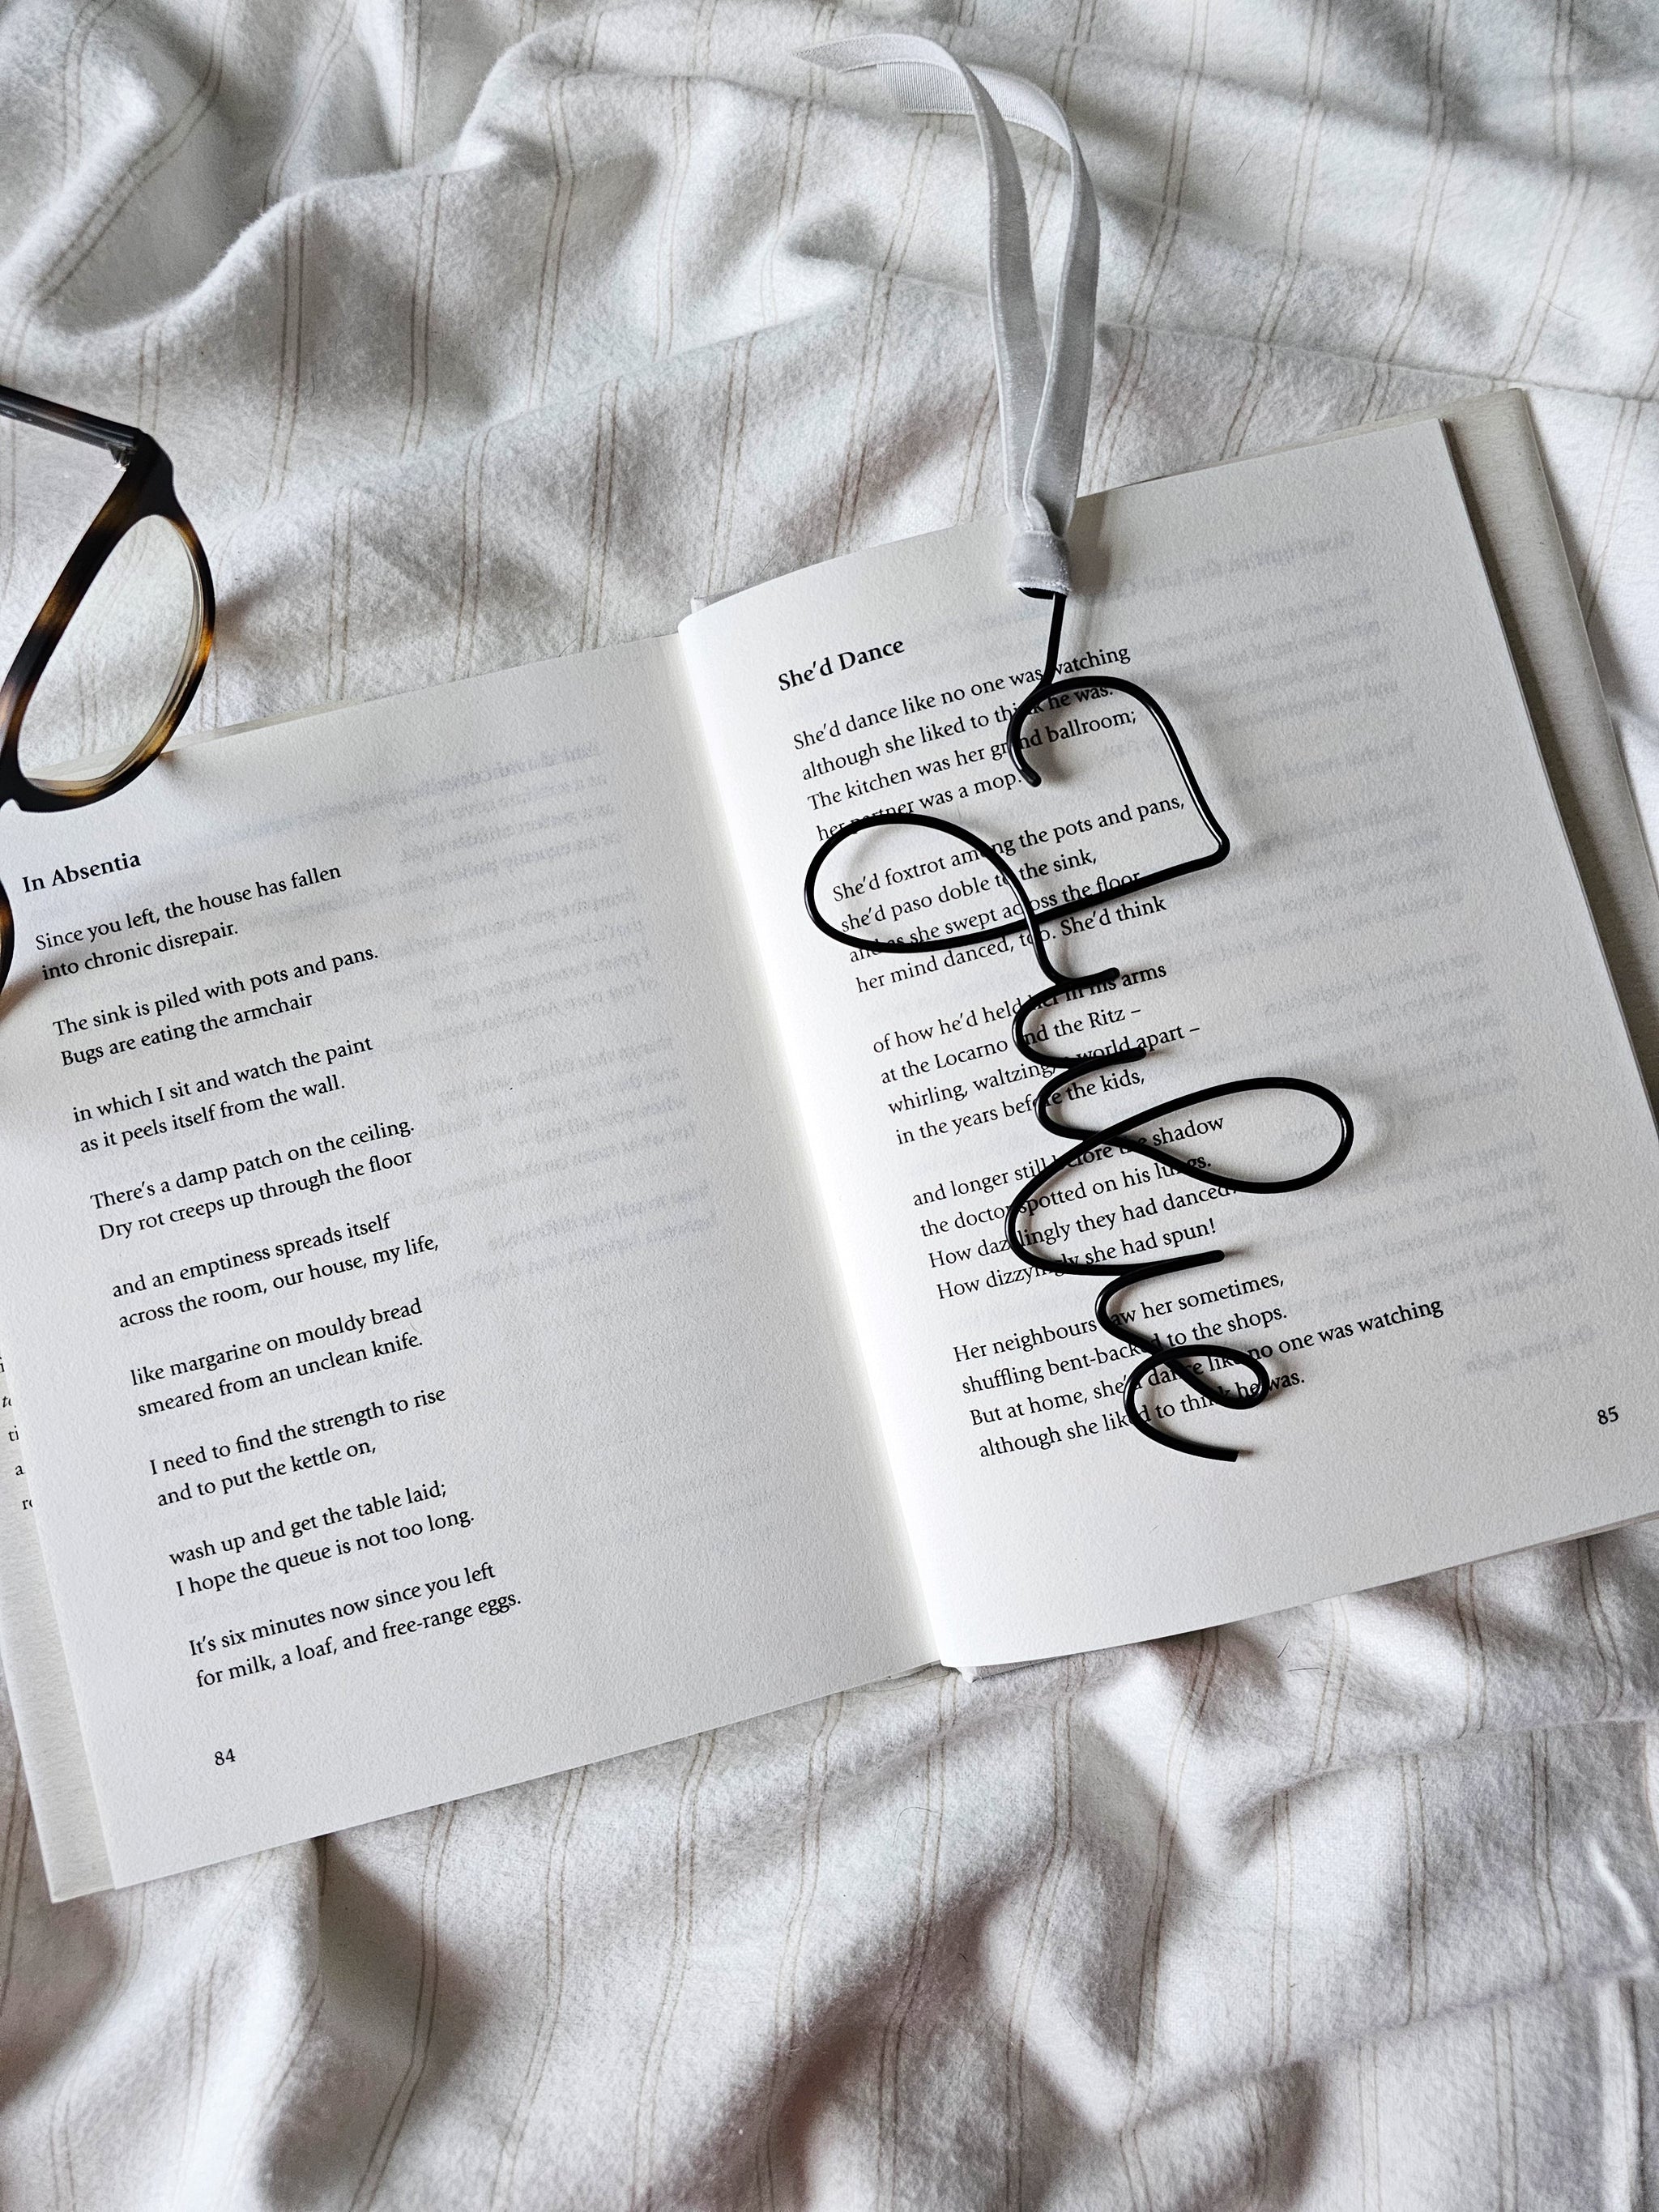 In Absentia
Since you left, the house has fallen
into chronic disrepair.
The sink is piled with pots and pans.
Bugs are eating the armchair
in which I sit and watch the paint
as it peels itself from the wall.
There's a damp patch on the ceiling.
Dry rot creeps up through the floor
and an emptiness spreads itself
across the room, our house, my life,
like margarine on mouldy bread
smeared from an unclean knife.
I need to find the strength to rise
and to put the kettle on,
wash up and get the table laid;
I hope the queue is not too long.
It's six minutes now since you left
for milk, a loaf, and free-range eggs.
84
She'd Dance
She'd dance like no one was watching
although she liked to think he was.
The kitchen was her grand ballroom;
her partner was a mop.
She'd foxtrot among the pots and pans,
she'd paso doble to the sink,
and as she swept across the floor
her mind danced, too. She'd think
of how he'd held her in his arms
at the Locarno and the Ritz –
whirling, waltzing, a world apart –
in the years before the kids,
and longer still before the shadow
the doctor spotted on his lungs.
How dazzlingly they had danced!
How dizzyingly she had spun!
Her neighbours saw her sometimes,
shuffling bent-backed to the shops.
But at home, she'd dance like no one was watching
although she liked to think he was.
85